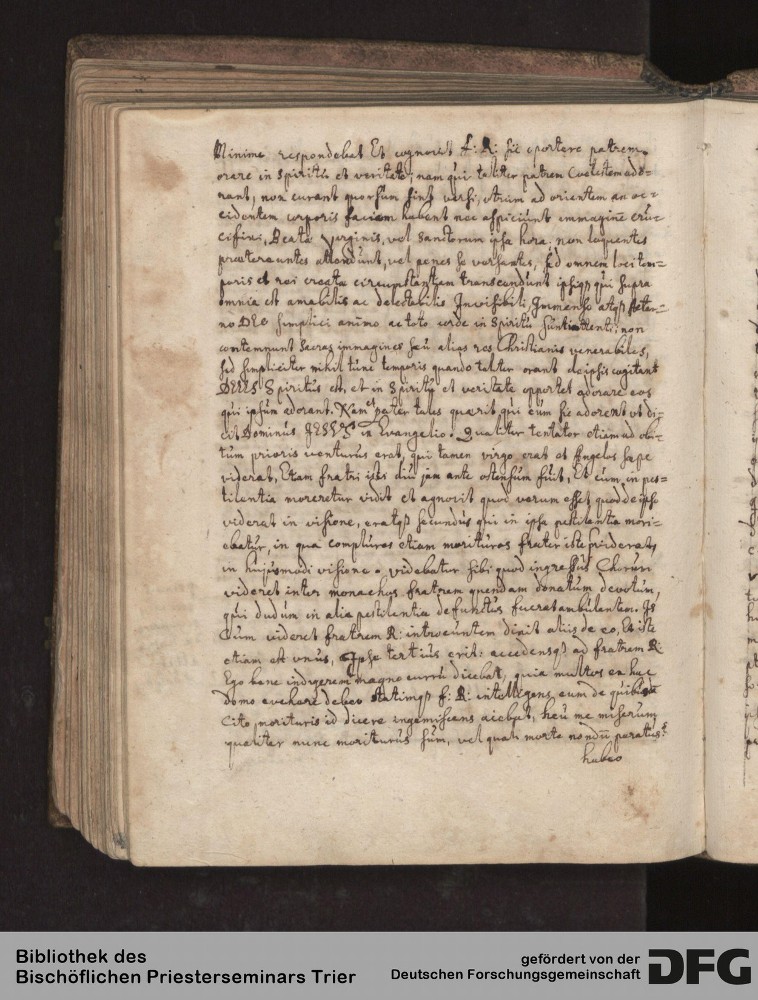 Minime respondebat Et cognovit f: R: sic oportere patrem
orare in spiritu et veritate, nam qui taliter patrem Coelestem ado=
rant, non curant quorsum sint versi, utrum ad orientem an oc=
cidentem corporis faciem habent nec aspiciunt immagine cru=
cifixi, Beatae Virginis, vel Sanctorum ipsa hora. non loquentes
praetereuntes attendunt, vel penes se versantes, sed omnem loci tem=
poris et rei creatae circumstantiam transcendunt ipsiq3 qui supra
omnia est amabilis ac delectabilis Invisibili, Immenso atq3 Aeter=
no DEO simplici animo ac toto corde in Spiritu non
contemnunt Sacras immagines seu alias res Christianis venerabiles,
sed simpliciter nihil tunc temporis quando taliter orant de ipsis cogitant
DEUS Spiritus est, et in Spiritu et veritate oportet adorare eos
qui ipsum adorant. Nam et pater tales quaerit qui eum sic adorent ut di=
cit Dominus JESUS in Evangelio. Qualiter tentator etiam ad obi=
tum prioris venturus erat, qui tamen virgo erat et Angelos saepe
viderat, Etiam fratri isti diu jam ante ostensum fuit, Et cum in pes=
tilentia moreretur vidit et agnovit quod verum esset quod de ipso
viderat in visione, eratq3 secundus qui in ipsa pestilentia mori=
ebatur, in qua complures etiam morituros frater iste
in hujusmodi visione. videbatur sibi quod ingressus Chorum
videret inter monachos fratrem quendam donatum devotum,
qui dudum in alia pestilentia defunctus fuerat ambulantem. Is
Cum videret fratrem R: introeuntem dixit aliis de eo, Et iste
etiam est unus, Ipse tertius erit: accedensq3 ad fratrem R:
Ego bene indigerem magno curru dicebat, quia multos ex hac
domo evehere debeo statimq3 f: R: intelligens eum de quibusdam
Cito morituris id dicere ingemiscens aiebat, heu me miserum
qualiter nunc moriturus sum, vel quali morte nondum paratus
habeo
Bibliothek des
Bischöflichen Priesterseminars Trier
gefördert von der
Deutschen Forschungsgemeinschaft
DFG